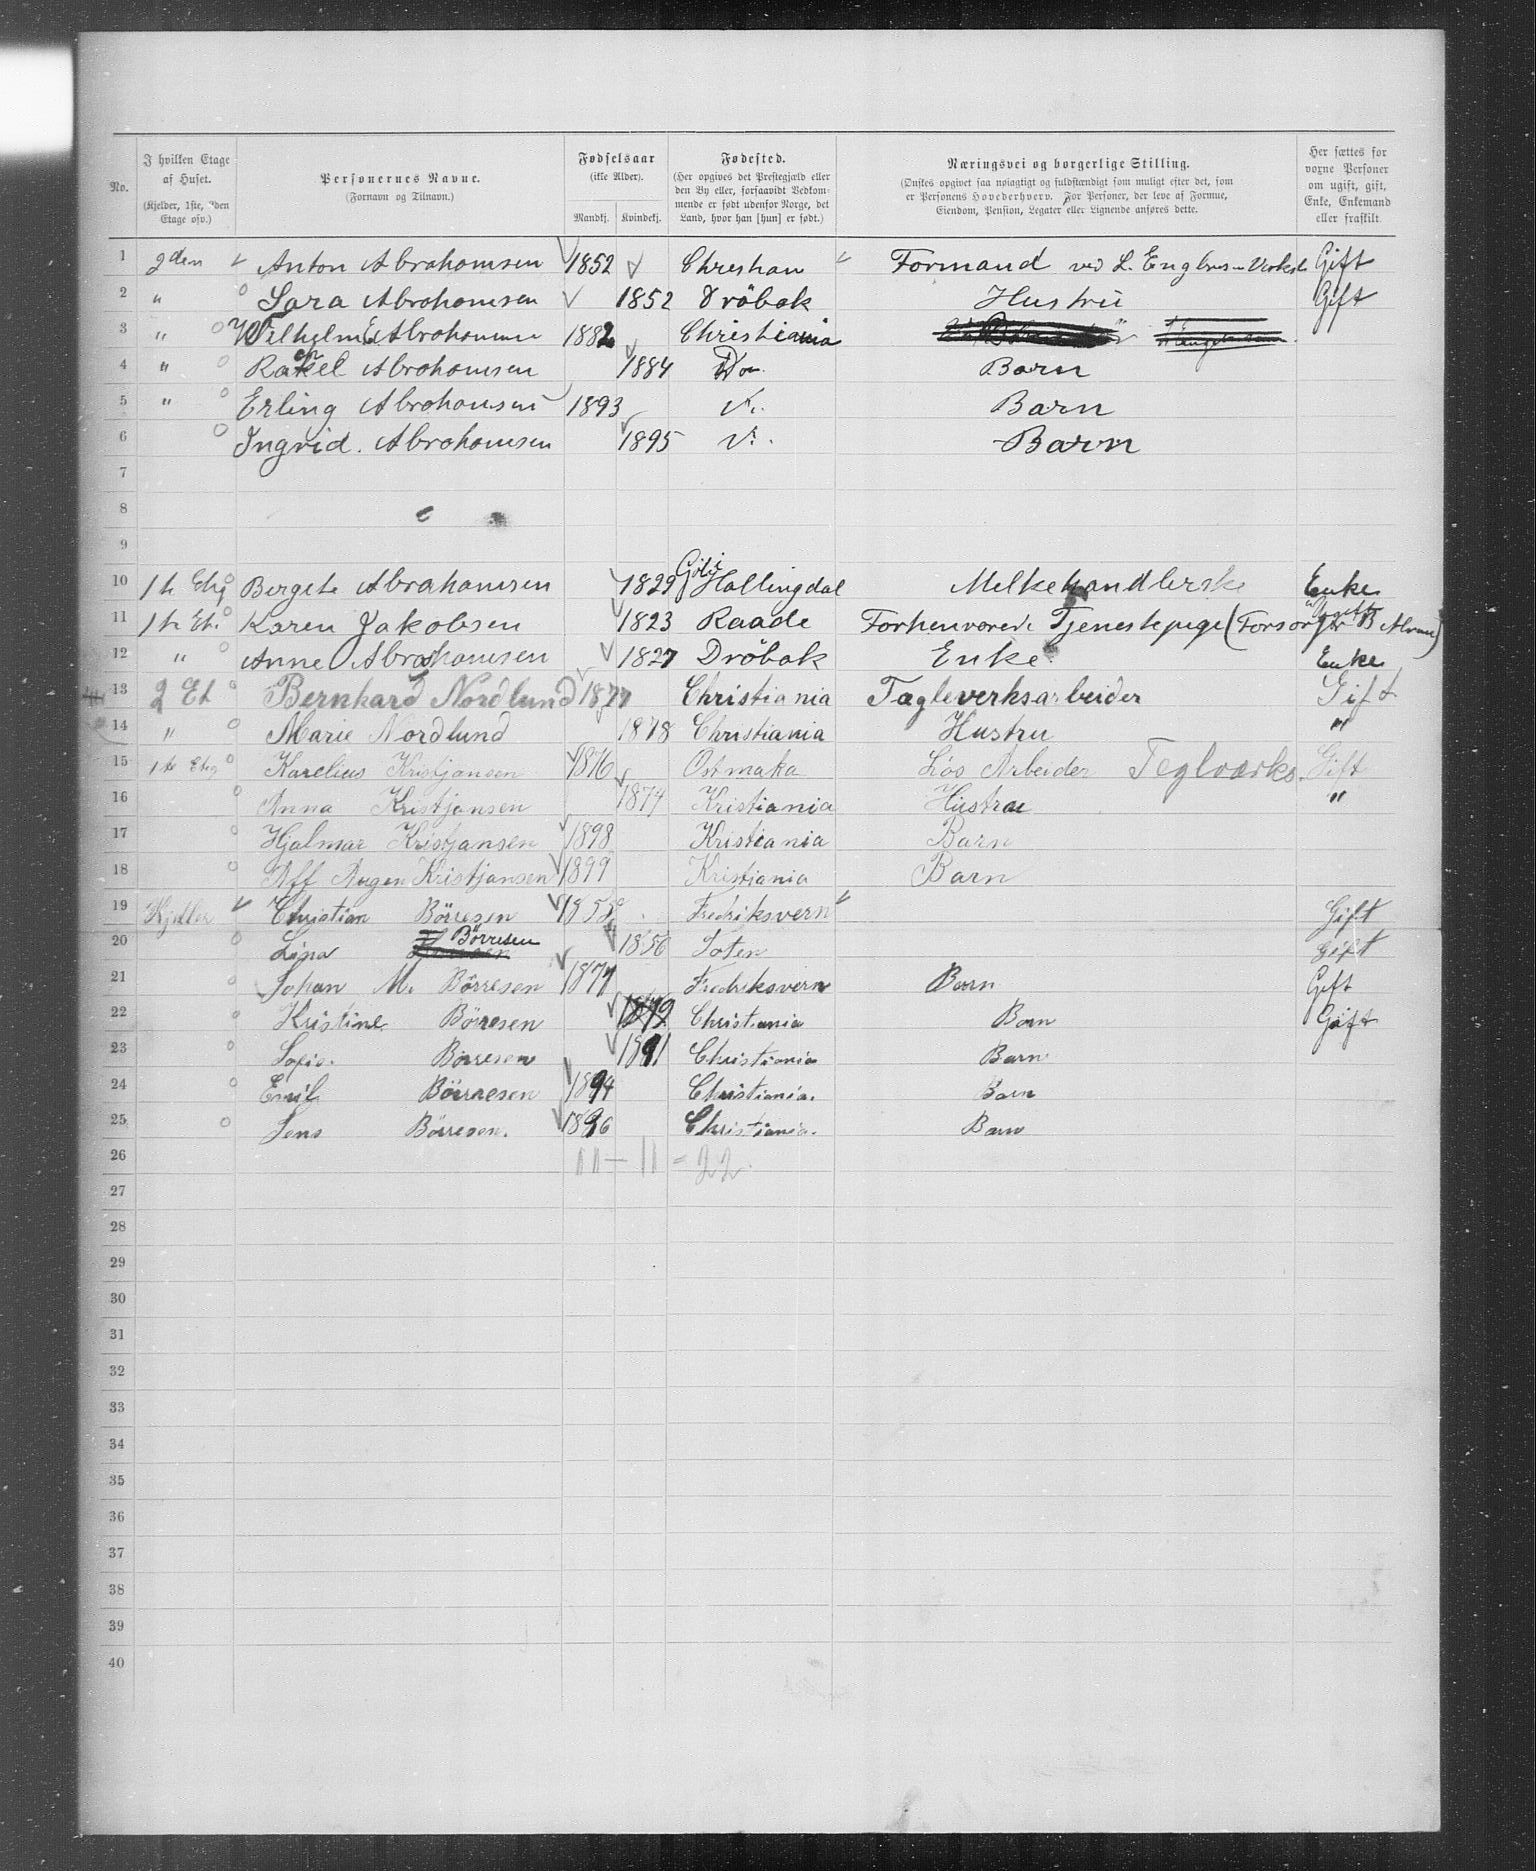 No. I hvilken Etage af Huset. (Kjelder, 1ste, 2den Etage osv.) Personernes Navne. (Fornavn og Tilnavn.) Fødselsaar (ikke Alder). Mandkj. Kvindekj. Fødested. (Her opgives det Prestegjæld eller den By eller, forsaavidt Vedkommende er født udenfor Norge, det Land, hvor han [hun] er født.) Næringsvei og borgerlige Stilling. (Ønskes opgivet saa nøiagtigt og fuldstændigt som muligt efter det, som er Personens Hovederhverv. For Personer, der leve af Formue, Eiendom, Pension, Legater eller Lignende anføres dette. Her sættes for voxne Personer om ugift, gift, Enke, Enkemand eller fraskilt.
1 2den Anton Abrahamsen 1852 Formand ved L. Gift
2 " Sara Abrahamsen 1852 Dröbak Hustru Gift
3 " Abrahamsen 1882 Christiania
4 " Rakel Abrahamsen 1884 Do. Barn
5 " Erling Abrahamsen 1893 Barn
6 Ingrid. Abrahamsen 1895 Barn
7
8
9
10 Abrahamsen 1829 Hallingdal Melkehandlerske Enke
11 Karen Jakobsen 1823 Raade Tjenestepige (Forsörges
12 " Anne Abrahamsen 1827 Dröbak Enke Enke
13 2 Et Bernhard Nordlund 1877 Christiania Tægleverksarbeider Gift
14 " Marie Nordlund 1878 Christiania Hustru "
15 Karelius Kristjansen 1876 Lös Arbeider Teglværks. Gift
16 Anna Kristjansen 1874 Kristiania Hustrue "
17 Hjalmar Kristjansen 1898 Kristiania Barn
18 Kristjansen 1899 Kristiania Barn
19 Kjeller Christian Börresen Fredriksvern Gift
20 Lina Börresen 1856 Toten Gift
21 Johan M. Börresen 1877 Fredriksvern Barn Gift
22 Kristine Börresen Christiania Barn Gift
23 Sofie. Börresen 1891 Christiania Barn
24 Emil Börresen 1894 Christiania. Barn
25 Jens Börresen. 1896 Christiania. Barn
26 11 — 11 = 22.
27
28
29
30
31
32
33
34
35
36
37
38
39
40